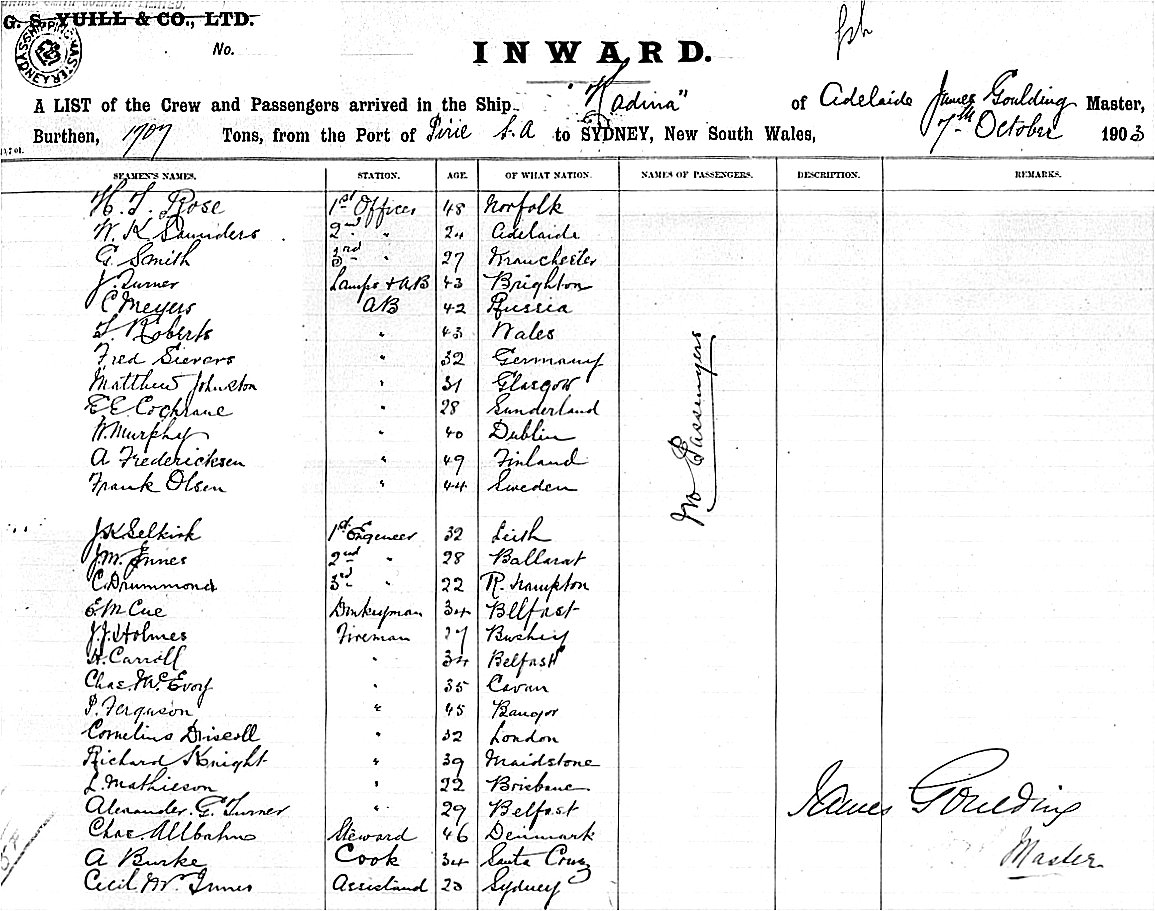 G. S. YUILL & CO., LTD.
SHIPPING MASTER SYDNEY
No.
INWARD.
A LIST of the Crew and Passengers arrived in the Ship "Kadina" of Adelaide James Goulding Master,
Burthen, 1707 Tons, from the Port of Pirie S.A to SYDNEY, New South Wales, 7th October 1903
SEAMEN'S NAMES. STATION. AGE. OF WHAT NATION. NAMES OF PASSENGERS. DESCRIPTION. REMARKS.
H. J. Rose 1st Officer 48 Norfolk
W. K Saunders 2nd " 24 Adelaide
G. Smith 3rd " 27 Manchester
J. Turner Lamps + AB 43 Brighton
C Meyers AB 42 Russia
Roberts " 43 Wales
Fred Sievers " 32 Germany
Matthew Johnston " 31 Glasgow
E E Cochrane " 28 Sunderland
W. Murphy " 40 Dublin
A Fredericksen " 49 Finland
Frank Olsen " 44 Sweden
No Passengers
J K Selkirk 1st Engeneer 32 Leith
J. M. Innes 2nd " 28 Ballarat
C. Drummond 3rd " 22 R. hampton
E. McCue Donkeyman 34 Belfast
J. J. Holmes Fireman 27 Bushey
H. Carroll " 34 Belfast
Chas. McEvoy " 35 Cavan
P. Ferguson " 45 Bangor
Cornelius Driscoll " 32 London
Richard Knight " 39 Maidstone
L. Mathieson " 22 Brisbane
Alexander. G. Turner " 29 Belfast
James Goulding
Chas. Allbahn Steward 46 Denmark
Master
A Burke Cook 34 Santa Cruz
Cecil W. Innes Assistand 20 Sydney